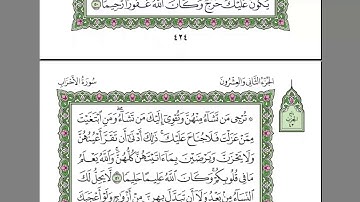 يَكُونَ عَلَيْكَ حَرَجٌ وَكَانَ اللَّهُ غَفُورًا رَّحِيمًا ٥٠
٤٢٤
الجزء الثاني والعشرون
سورة الأحزاب
۞ تُرْجِي مَن تَشَاءُ مِنْهُنَّ وَتُؤْوِي إِلَيْكَ مَن تَشَاءُ وَمَنِ ابْتَغَيْتَ
مِمَّنْ عَزَلْتَ فَلَا جُنَاحَ عَلَيْكَ ذَٰلِكَ أَدْنَىٰ أَن تَقَرَّ أَعْيُنُهُنَّ
وَلَا يَحْزَنَّ وَيَرْضَيْنَ بِمَا آتَيْتَهُنَّ كُلُّهُنَّ وَاللَّهُ يَعْلَمُ
مَا فِي قُلُوبِكُمْ وَكَانَ اللَّهُ عَلِيمًا حَلِيمًا ٥١ لَّا يَحِلُّ لَكَ
النِّسَاءُ مِن بَعْدُ وَلَا أَن تَبَدَّلَ بِهِنَّ مِنْ أَزْوَاجٍ وَلَوْ أَعْجَبَكَ